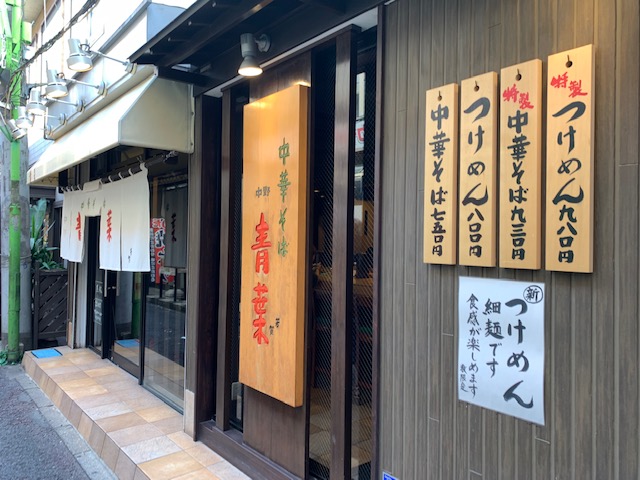 中華そば
中野
青葉
中華そば七五〇円
つけめん八〇〇円
特製
中華そば九三〇円
特製
つけめん九八〇円
新
つけめん
細麺です
食感が楽しめます
数限定
青
葉